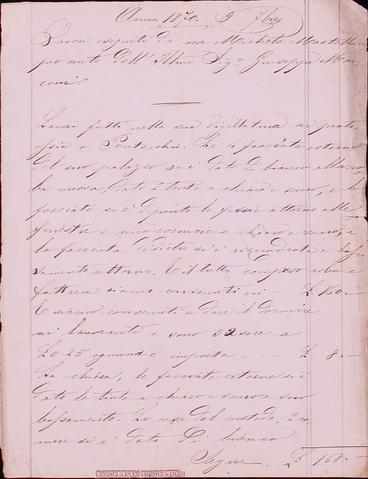 Anno 1870. 9 7bre
Lavori eseguiti da me Michele
per conto dell' Illmo Sigr Giuseppe Mar
coni
Lavori fatti nella sua villeggiatura ai prati,
ossia a Pontecchio. Le facciate esterne
del suo palazzo si è dato di bianco alla
la nuova, dato 2 tinte a chiaro scuro, e le
facciate si è dipinto le fascie attorno alle
finestre e una cornice a chiaro e scuro, e
la facciata di dietro si è riquadrata e
samento attorno. E il tutto compreso roba e
fattura siamo convenuti in - £ 160.-
E siamo convenuti a dare il dormire
ai lavoranti e sono 32 sere a
£0.25 ognuna e importa - - - £ 8.-
La chiesa, le facciate esterne si è
dato le tinte a chiaro e scuro e suo
bassamento. La casa del custode, 2 ca
mere si è dato di bianco
Segue. £ 168.-